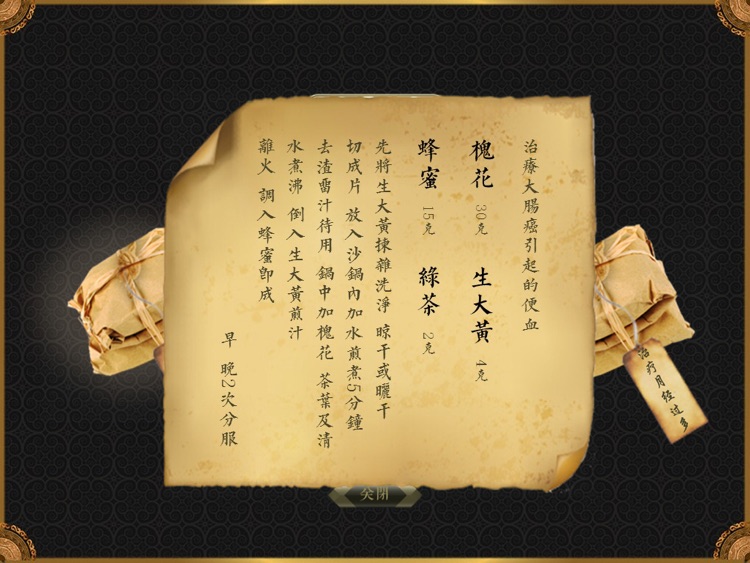 治療大腸癌引起的便血
槐花 30克 生大黃 4克
蜂蜜 15克 綠茶 2克
先將生大黃揀雜洗淨 晾干或曬干
切成片 放入沙鍋內加水煎煮5分鐘
去渣留汁待用 鍋中加槐花 茶葉及清
水煮沸 倒入生大黃煎汁
離火 調入蜂蜜即成
早 晚2次分服
治疗月经过多
关闭